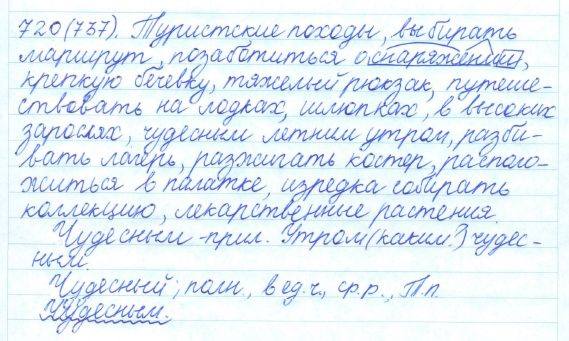 720(737). Туристские походы, выбирать
маршрут, позаботиться о снаряжении,
крепкую бечевку, тяжелый рюкзак, путеше-
ствовать на лодках, шлюпках, в высоких
зарослях, чудесным летним утром, разби-
вать лагерь, разжигать костер, располо-
житься в палатке, изредка собирать
коллекцию, лекарственные растения.
Чудесным - прил. Утром (каким?) чудес-
ным.
Чудесный; полн., в ед.ч., ср.р., Т.п.
Чудесным.